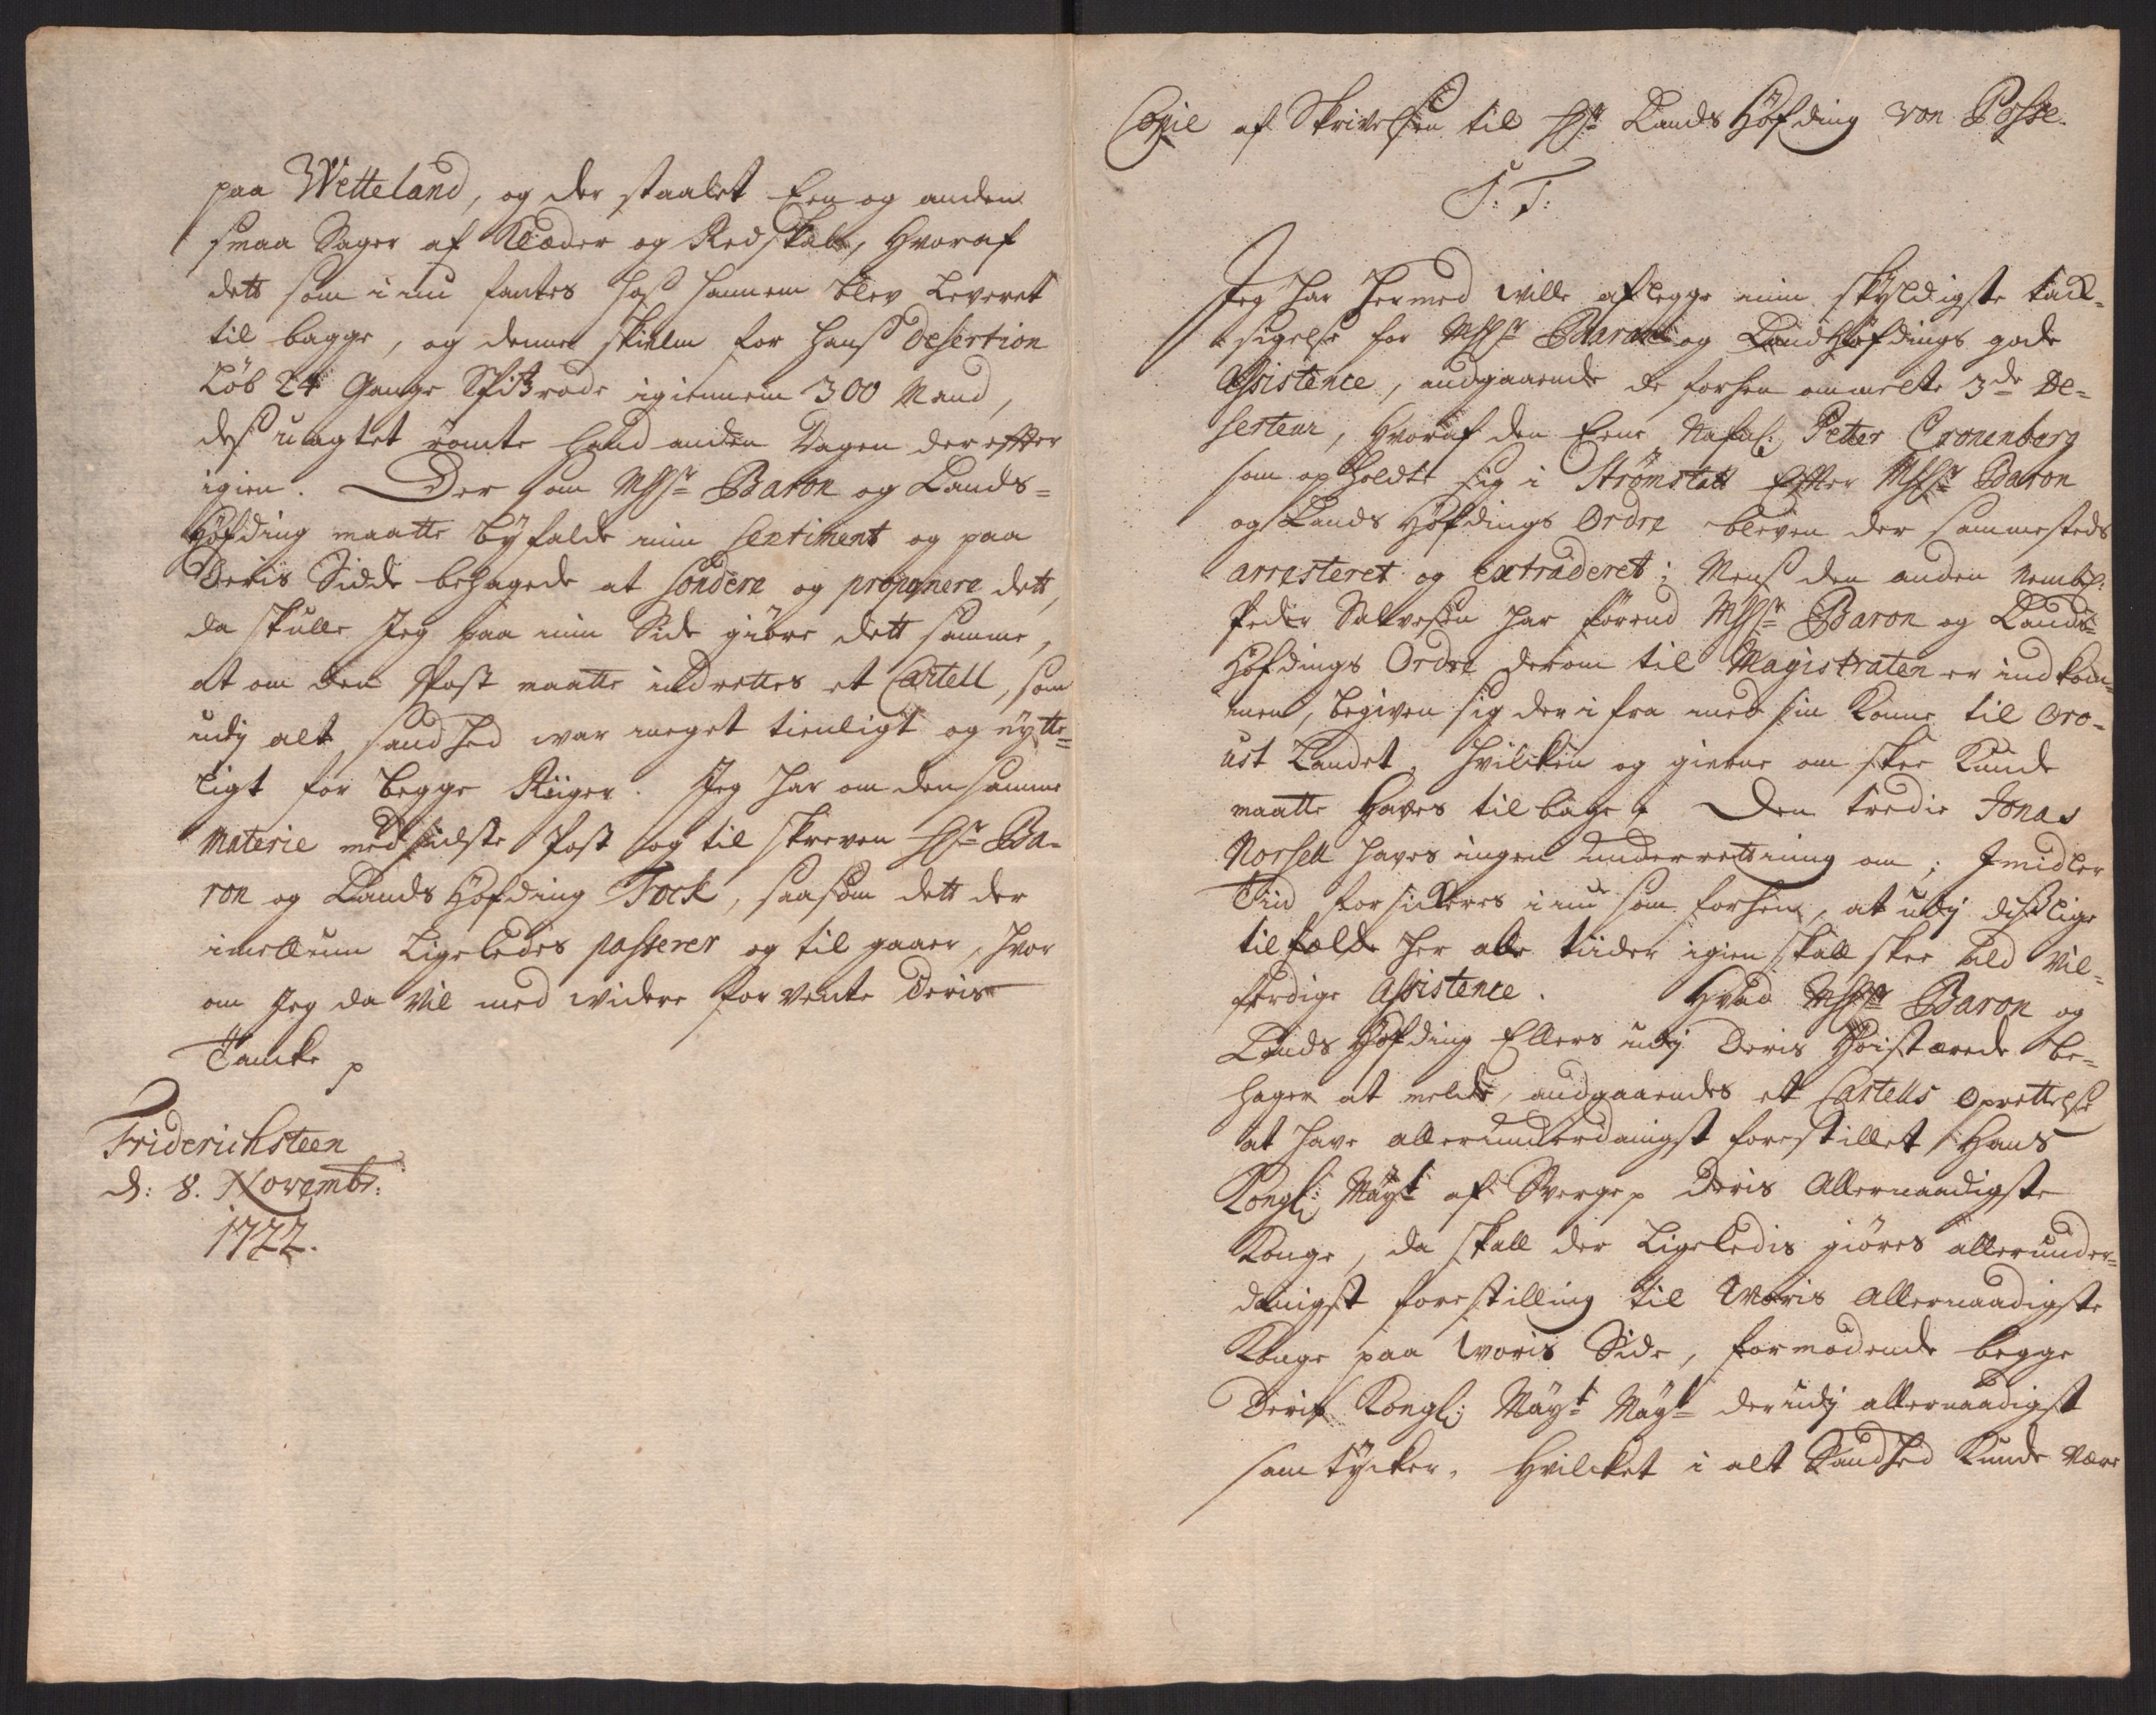 paa Wetteland, og der staalet Een og anden
smaa Sager af Klæder og Redskab, hvoraf
dett som i nu fantes hos hannem blev leveret
til bagge, og denne skielm for hans Desertion
Løb 24 Gange Spitzrode igiennem 300 Mand,
des uagtet römte hand anden Dagen der effter
igien. Der som MHHr Baron og Lands=
Höfding maatte byfalde min Sentiment og paa
Deris Sidde behagede at sondere og propon​ere dett,
da skulle Jeg paa min Side giöre dett samme,
at om den Post maatte indrettes et Cartell, som
udj alt sandhed war meget tienligt og nytte=
ligt for begge Riiger. Jeg har om den samme
Materie med sidste Post og til skreven Hr Ba=
ron og Lands Höfding Tock, saasom dett der
imellum ligeledes passerer og til gaaer, hvor
om Jeg da vil med widere forvente Deris
Tancke p
Friderichsteen
d: 8. Novembr:
1722.
Copie af Skrivelsen til Hr Lands Höfding von Posse.
S: T:
Jeg har hermed wille aflegge min skyldigste tack=
sigelse for MHHr Baron og Landhöfdings gode
Assistence, andgaaende de forhen ommelte 3de De=
serteur, hvoraf den Eene Nafnl: Petter Cronenberg
som opholdte sig i Strömstatt Effter MHHr Baron
og Lands Höfdings Ordre bleven der sammesteds
arresteret og extraderet; Mens den anden nembl:
Peder Salvesen har förend MHHr Baron og Lands
Höfdings Ordre derom til Magistraten er indkom=
men, begiven sig der i fra med sin Konne til Oro=
ust Landet, hvilcken og gierne om skee kunde
maatte haves tilbage. Den tredie Jonas
Norsell haves ingen underrettning om; Imidler
Tiid forsickres i nu som forhen, at udj dislige
tilfælde her alle tiider igien skall skee all vil=
færdige Assistence. Hvad MHHr Baron og
Lands Höfding Ellers udj Deris Höistærede be=
hager at melde, andgaaendes et Cartells oprettelse
at have allerunderdanigst forestillet Hans
Kongl: Mayt af Sverge p Deris Allernaadigste
Konge, da skall der ligeledis giöres allerunder=
danigst forestilling til Woris Allernaadigste
Konge paa woris Side, formodende begge
Deris Kongl: Mayt Mayt derudj allernaadigst
samtycker, hvilcket i alt Sandhed kunde være